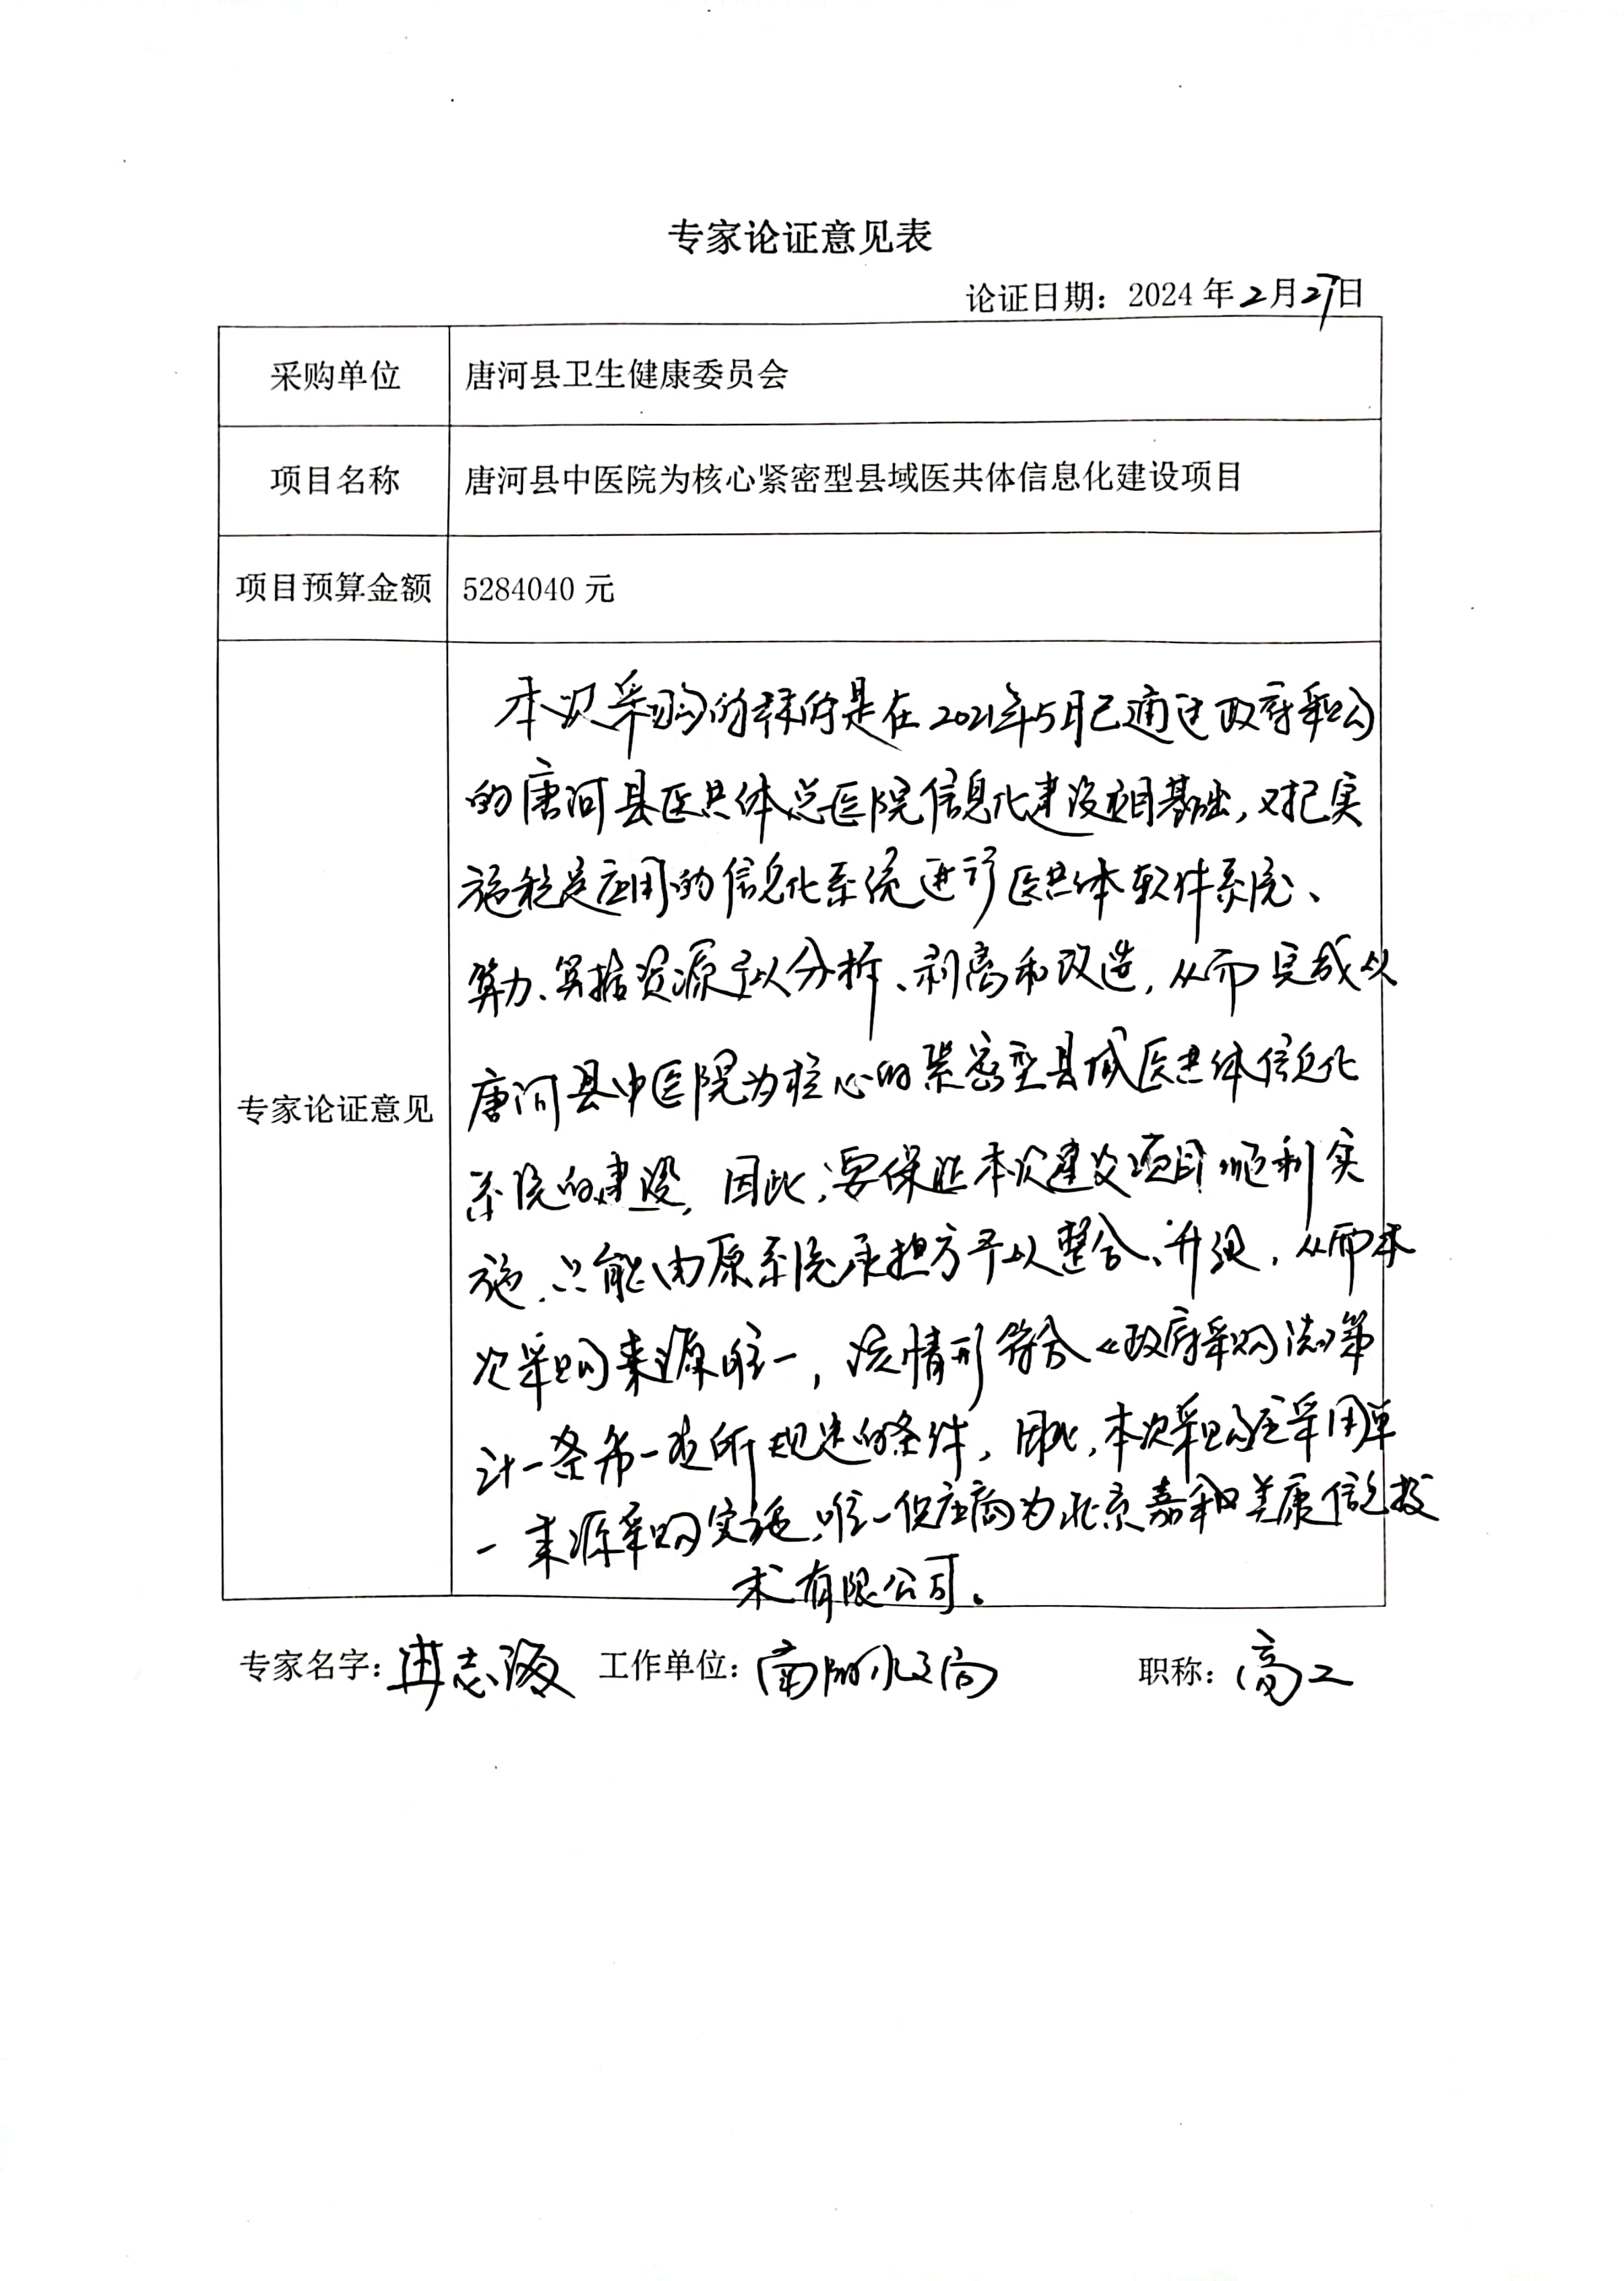 专家论证意见表
论证日期：2024年2月27日
采购单位
唐河县卫生健康委员会
项目名称
唐河县中医院为核心紧密型县域医共体信息化建设项目
项目预算金额
5284040元
专家论证意见
本次采购的标的是在2021年5月已通过政府采购
的唐河县医共体总医院信息化建设项目基础，对已实
施稳定应用的信息化系统进行医共体软件系统、
算力、算据资源予以分拆、剥离和改造，从而完成以
唐河县中医院为核心的紧密型县域医共体信息化
系统的建设，因此，要保证本次建设项目顺利实
施，只能由原系统承担方予以整合、升级，从而本
次采购来源唯一，该情形符合《政府采购法》第
卅一条第一项所规定的条件，因此，本次采购应采用单
一来源采购实施，唯一供应商为北京嘉和美康信息技
术有限公司。
专家名字：冉志海 工作单位：南阳水文局 职称：高工